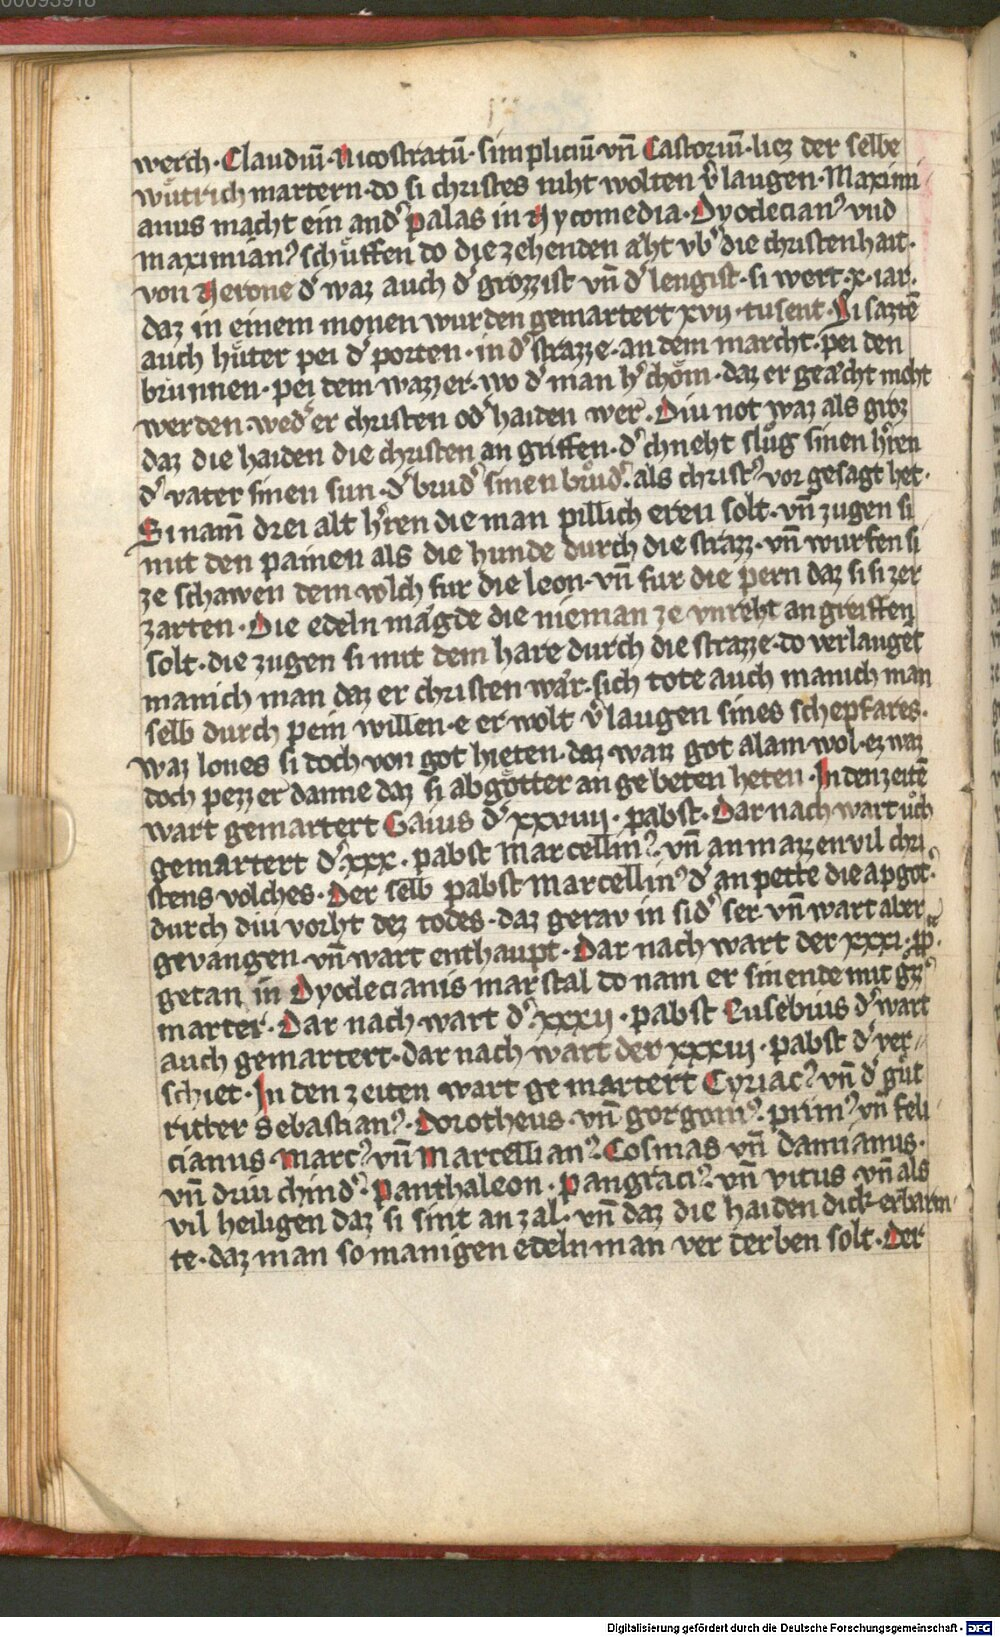 00093918
werch · Claudiū · Nicostratū · simpliciū · vn̄ Castoriū · liez der selbe
wuͤtrich martern · do si christes niht wolten v̓laugen · Maximi
anus macht ein and̓ palas in Nycomedia · Dyocleciana᷒ vnd
maximian᷒ schuͤffen do die zehenden aͤht vb̓ die christenhait ·
von Nerone d̓ waz auch d̓ grozzist vn̄ d̓ lengist · si wert · x · iar ·
daz in einem monen wurden gemartert xvij · tusent · Si saztē
auch huͤter pei d̓ porten · in d̓ strazze · an dem marcht · pei den
brunnen · pei dem wazzer · wo d̓ man h̓ choͤm · daz er geaͤcht moht
werden · wed̓ er christen od̓ haiden wer · Diu not waz als groz
daz die haiden die christen an griffen · d̓ chneht sluͦg sinen h̓ren
d̓ vater sinen sun · d̓ brud̓ sinen bruͦd̓ · als christ᷒ vor gesagt het ·
Si nam̄ drei alt h̓ren die man pillich eren solt · vn̄ zugen si
mit den painen als die hunde durch die strazz · vn̄ wurfen si
ze schawen dem volch fur die leon · vn̄ fur die pern daz si si zer
zarten · Die edeln maͤgde die nieman ze vnreht an greiffen
solt · die zugen si mit dem hare durch die strazze · do verlauget
manich man daz er christen waͤr · sich tote auch manich man
selb durch pein willen · e er wolt v̓laugen sines schepfares ·
waz lones si doch von got hieten · daz waiz got alain wol · ez waz
doch pezzer danne daz si abgoͤtter an gebeten heten · In den zeitē
wart gemartert Gaius d̓ xxviiij · pabst · Dar nach wart uͦch
gemartert d̓ · xxx · pabst Marcellin᷒ · vn̄ an mazzen vil chri
stens volches · Der selb pabst Marcellin᷒ d̓ an pette die apgot᷒ ·
durch diu vorht dez todes · daz gerav in sid̓ ser · vn̄ wart aber
gevangen · vn̄ wart enthaupt · Dar nach wart der xxxi · pp̄ ·
getan in Dyoclecianis marstal do nam er sin ende mit gz᷒
marter · Dar nach wart d̓ · xxxij · pabst Eusebius d̓ wart
auch gemartert · dar nach wart der xxxiij · pabst d̓ ver
schiet · In den zeiten wart gemartert Cyriac᷒ vn̄ d̓ guͦt
ritter Sebastian᷒ · Dorotheus · vn̄ gorgoni᷒ · prim᷒ vn̄ feli
cianus · Marc᷒ vn̄ Marcellian᷒ · Cosmas vn̄ damianus ·
vn̄ driu chind᷒ · Panthaleon · Pangraci᷒ · vn̄ vitus · vn̄ als
vil heiligen daz si sint an zal · vn̄ daz die haiden dick erbarm
te · daz man so manigen edeln man ver derben solt · Der
Digitalisierung gefördert durch die Deutsche Forschungsgemeinschaft - DFG